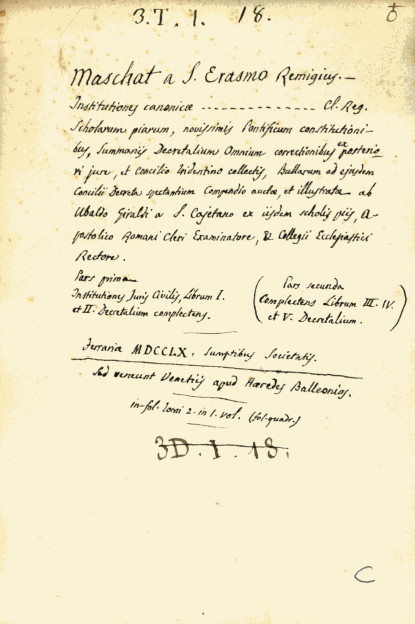 3.T.1.18.
Maschat a S. Erasmo Remigius.—
Institutiones canonicæ ---------------- Cl. Reg.
Scholarum piarum, novissimis Pontificum constitutioni-
bus, Summariis Decretalium Omnium correctionibus ex posterio
ri jure, et Concilio Tridentino collectis, Bullarum ad ejusdem
Concilii Decreta spectantium Compendio auctæ, et illustratæ ab
Ubaldo Giraldi a S. Cajetano ex iisdem scholis piis, A-
postolico Romani Cleri Examinatore, & Collegii Ecclesiastici
Rectore.
Pars prima
Institutiones Juris Civilis, Librum I.
et II. Decretalium complectens.
(Pars secunda
Complectens Librum III. IV.
et V. Decretalium.)
Ferrariæ MDCCLX. Sumptibus Societatis.
Sed veneunt Venetiis apud Hæredes Balleonios.
in-fol. tomi 2. in 1. vol. (fol. quadr.)
3D.1.18.
C